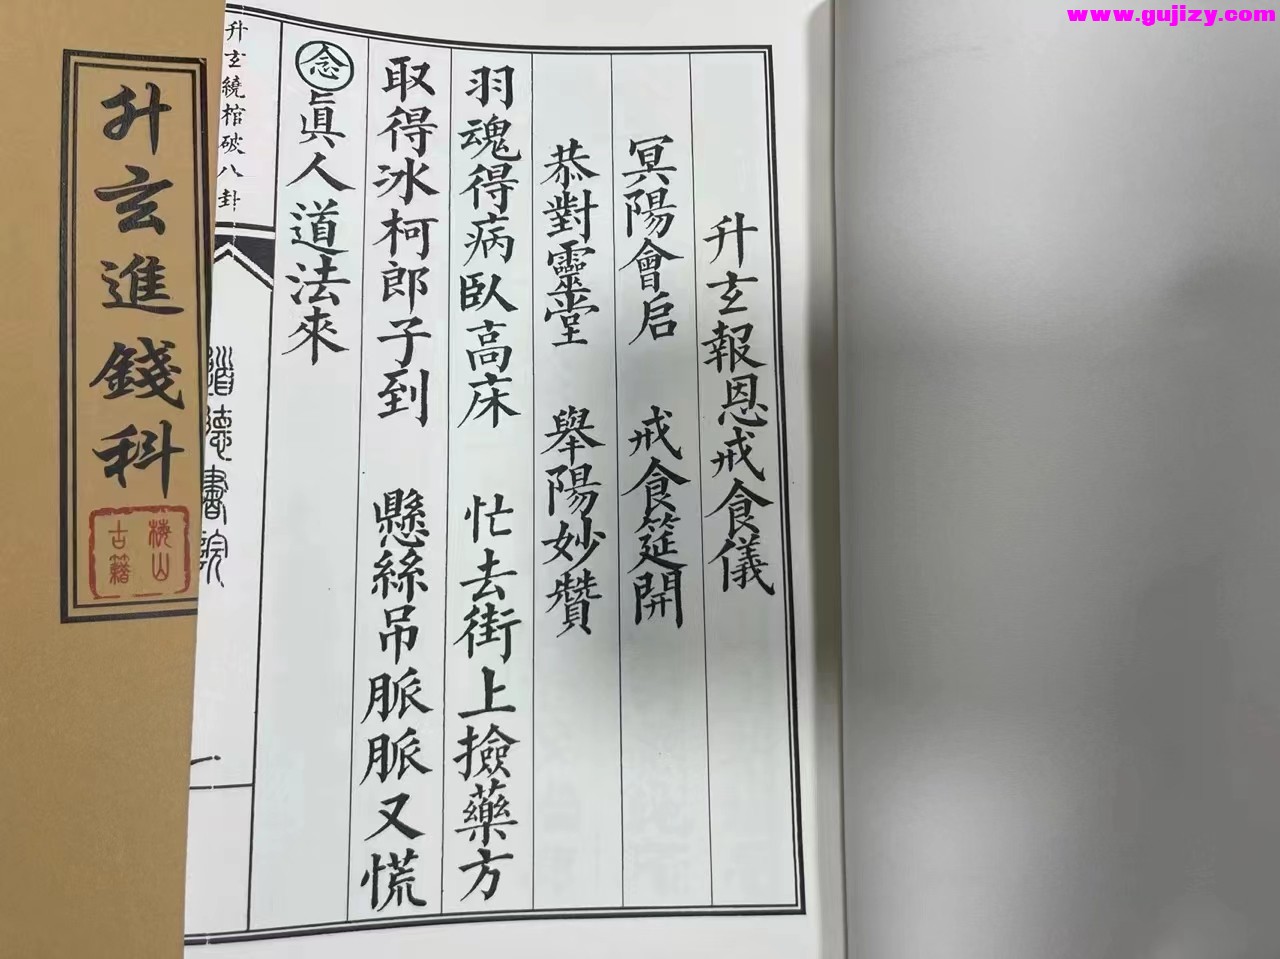 www.gujizy.com
升玄報恩戒食儀
冥陽會启 戒食筵開
恭對靈堂 舉陽妙贊
羽魂得病臥高床 忙去街上撿藥方
取得冰柯郎子到 懸絲吊脈脈又慌
念 真人道法來
升玄繞棺破八卦
道德書院
一
升玄進錢科
梅山
古籍